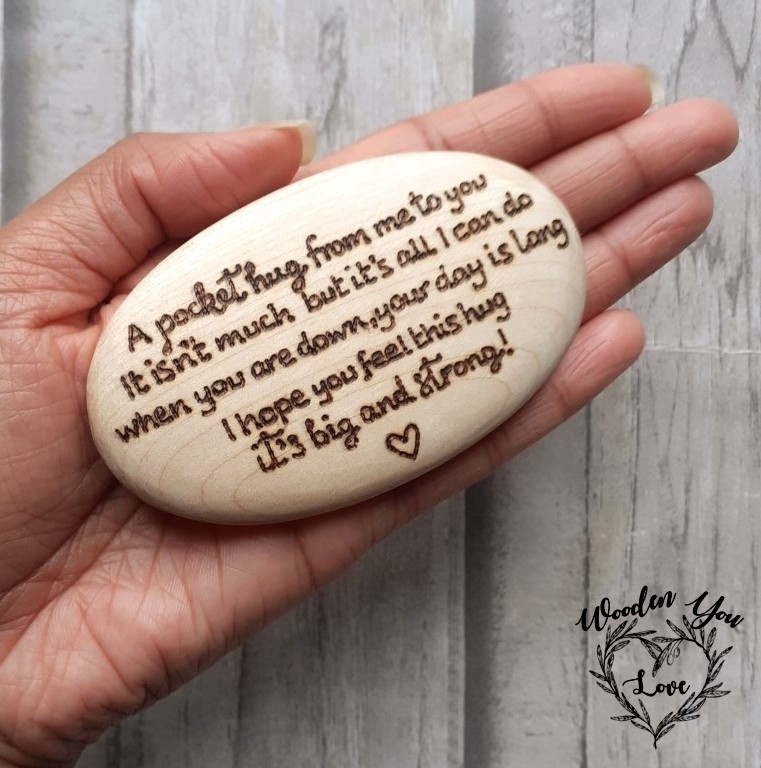 A pocket hug from me to you
It isn't much but it's all I can do
when you are down, your day is long
I hope you feel this hug
it's big and strong!
Wooden You
Love